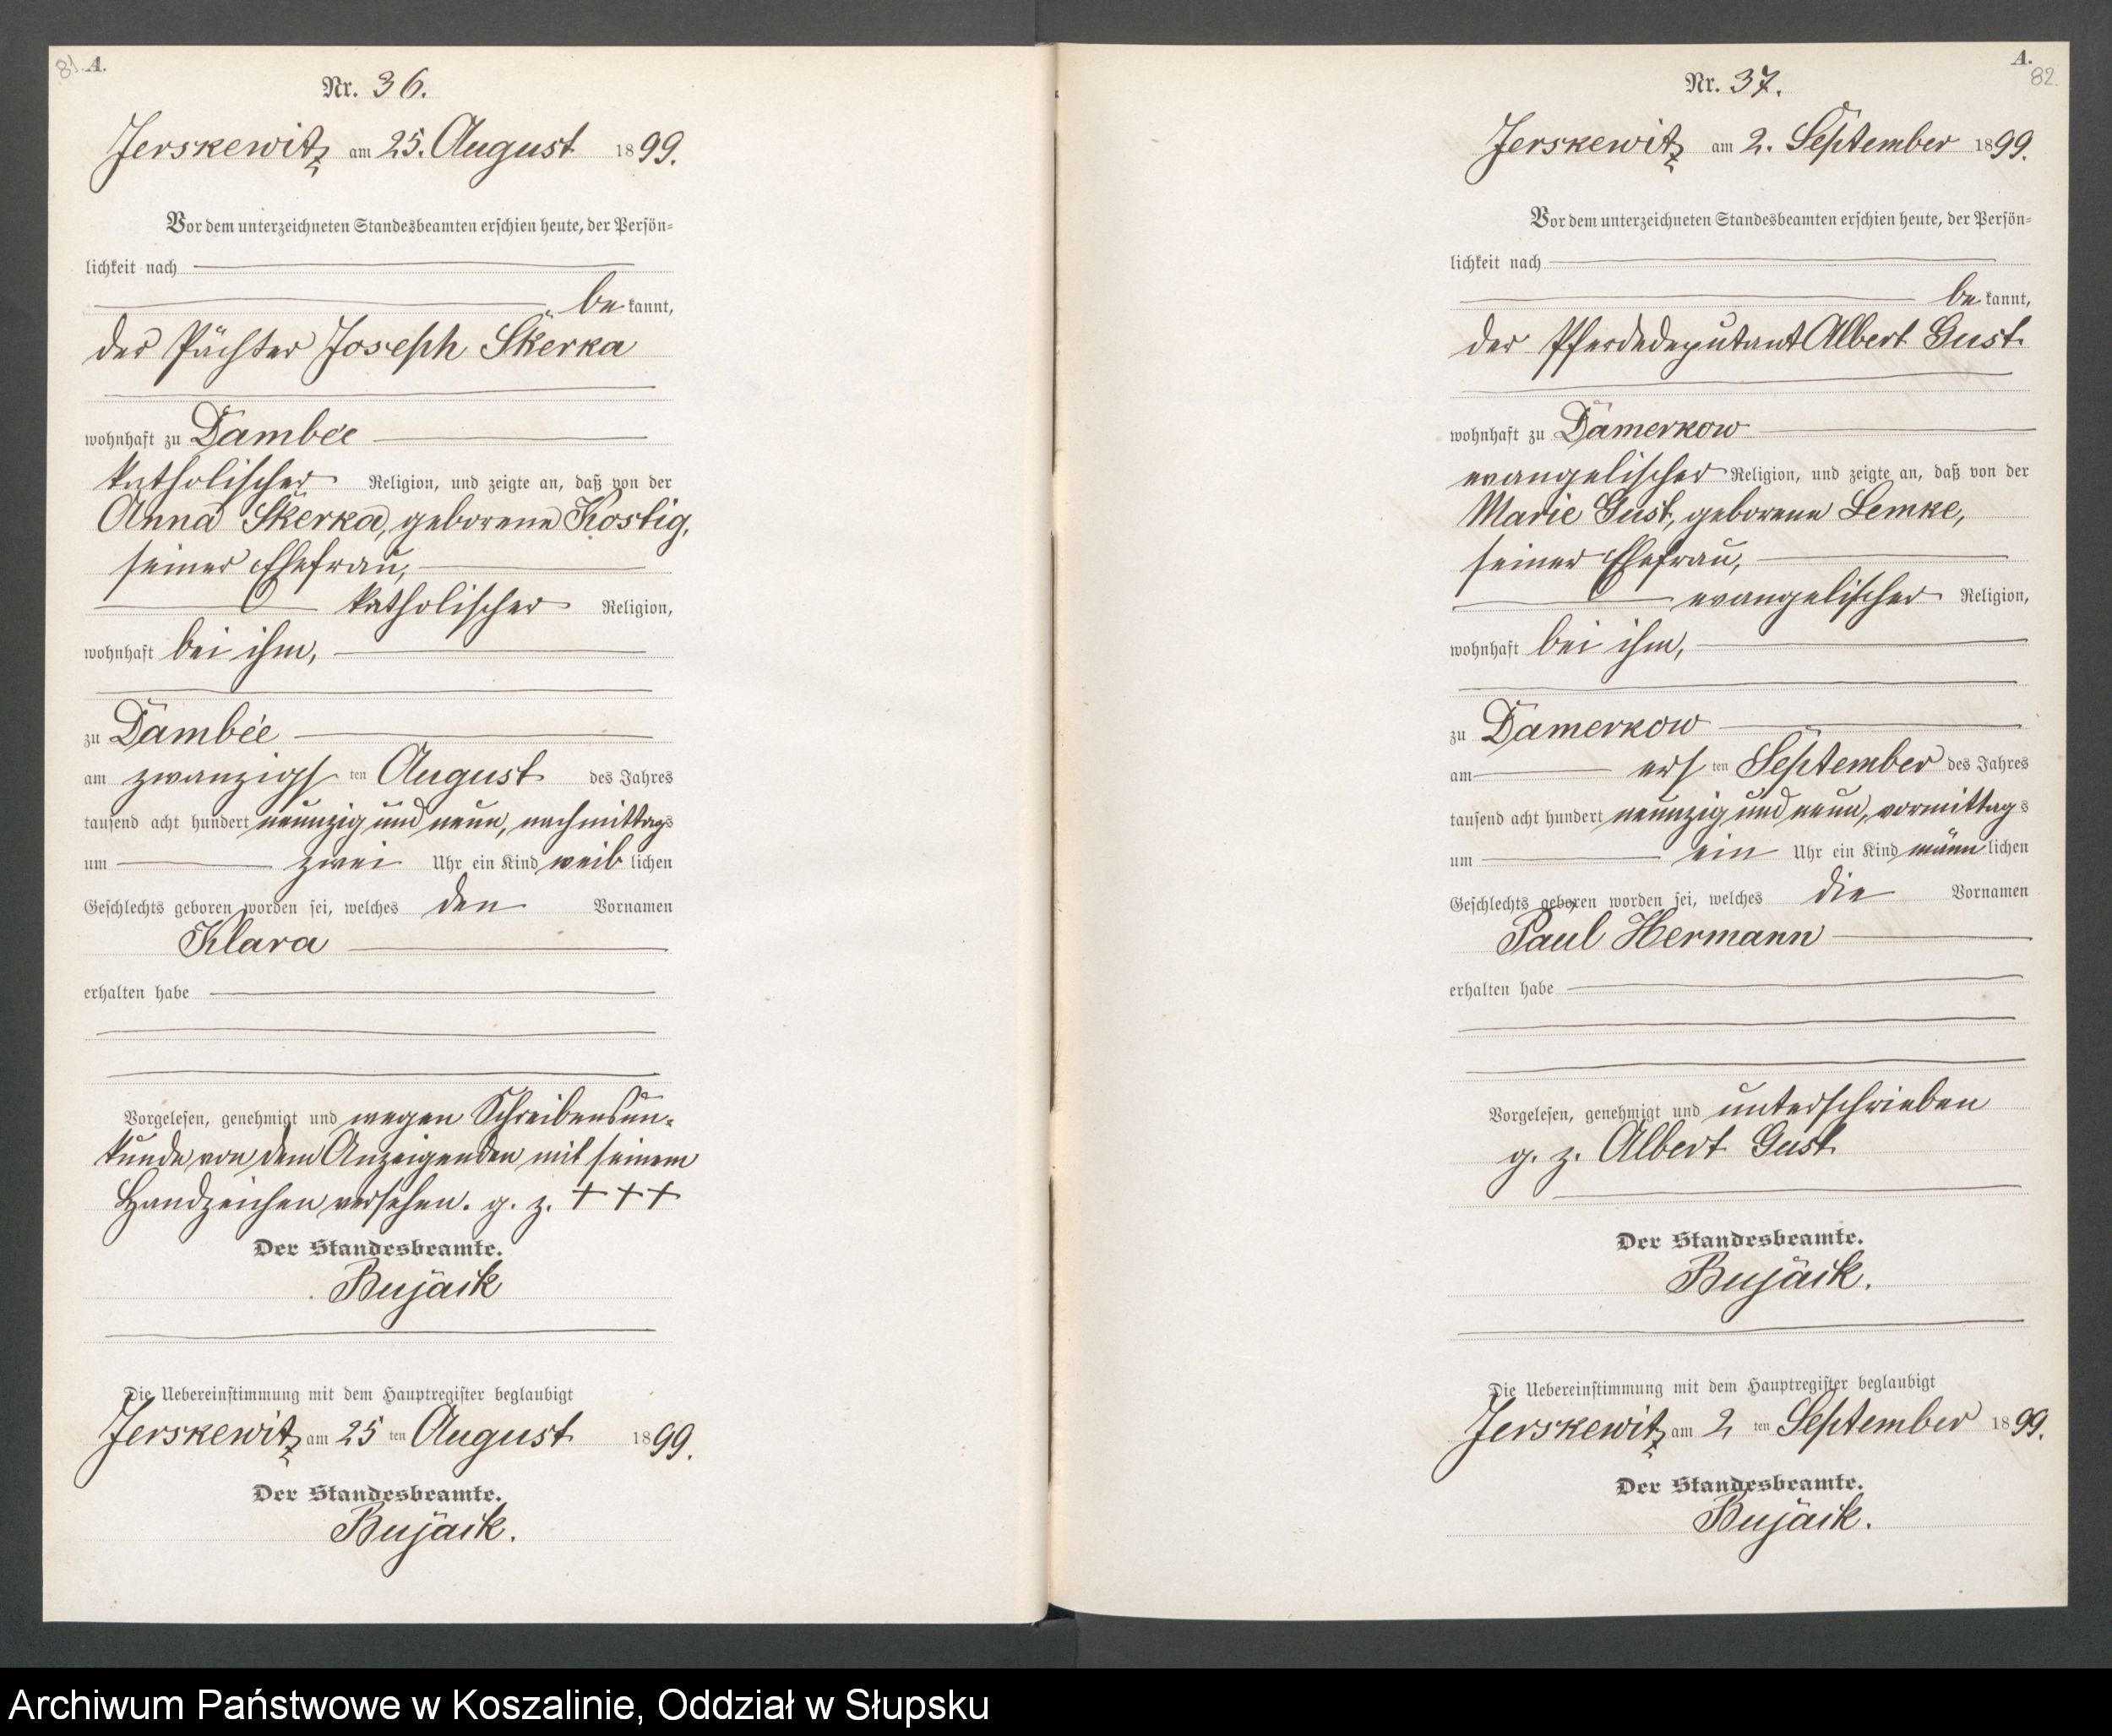 81 A.
Nr. 36.
Jerskewitz am 25. August 1899.
Vor dem unterzeichneten Standesbeamten erschien heute, der Persön-
lichkeit nach
be kannt,
der Pächter Joseph Skerka
wohnhaft zu Dambee
katholischer Religion, und zeigte an, daß von der
Anna Skerka, geborene Kostig,
seiner Ehefrau,
katholischer Religion,
wohnhaft bei ihm,
zu Dambee
am zwanzigs ten August des Jahres
tausend acht hundert neunzig und neun, nachmittags
um zwei Uhr ein Kind weib lichen
Geschlechts geboren worden sei, welches den Vornamen
Klara
erhalten habe
Vorgelesen, genehmigt und wegen Schreibensun-
kunde von dem Anzeigenden mit seinem
Handzeichen versehen. g. z. + + +
Der Standesbeamte.
Bujack
Die Uebereinstimmung mit dem Hauptregister beglaubigt
Jerskewitz am 25 ten August 1899.
Der Standesbeamte.
Bujack.
A.
82
Nr. 37.
Jerskewitz am 2. September 1899.
Vor dem unterzeichneten Standesbeamten erschien heute, der Persön-
lichkeit nach
be kannt,
der Pferdedeputant Albert Gust
wohnhaft zu Damerkow
evangelischer Religion, und zeigte an, daß von der
Marie Gust, geborene Lemke,
seiner Ehefrau,
evangelischer Religion,
wohnhaft bei ihm,
zu Damerkow
am ers ten September des Jahres
tausend acht hundert neunzig und neun, vormittags
um ein Uhr ein Kind männ lichen
Geschlechts geboren worden sei, welches die Vornamen
Paul Hermann
erhalten habe
Vorgelesen, genehmigt und unterschrieben
g. z. Albert Gust
Der Standesbeamte.
Bujack.
Die Uebereinstimmung mit dem Hauptregister beglaubigt
Jerskewitz am 2 ten September 1899.
Der Standesbeamte.
Bujack.
Archiwum Państwowe w Koszalinie, Oddział w Słupsku